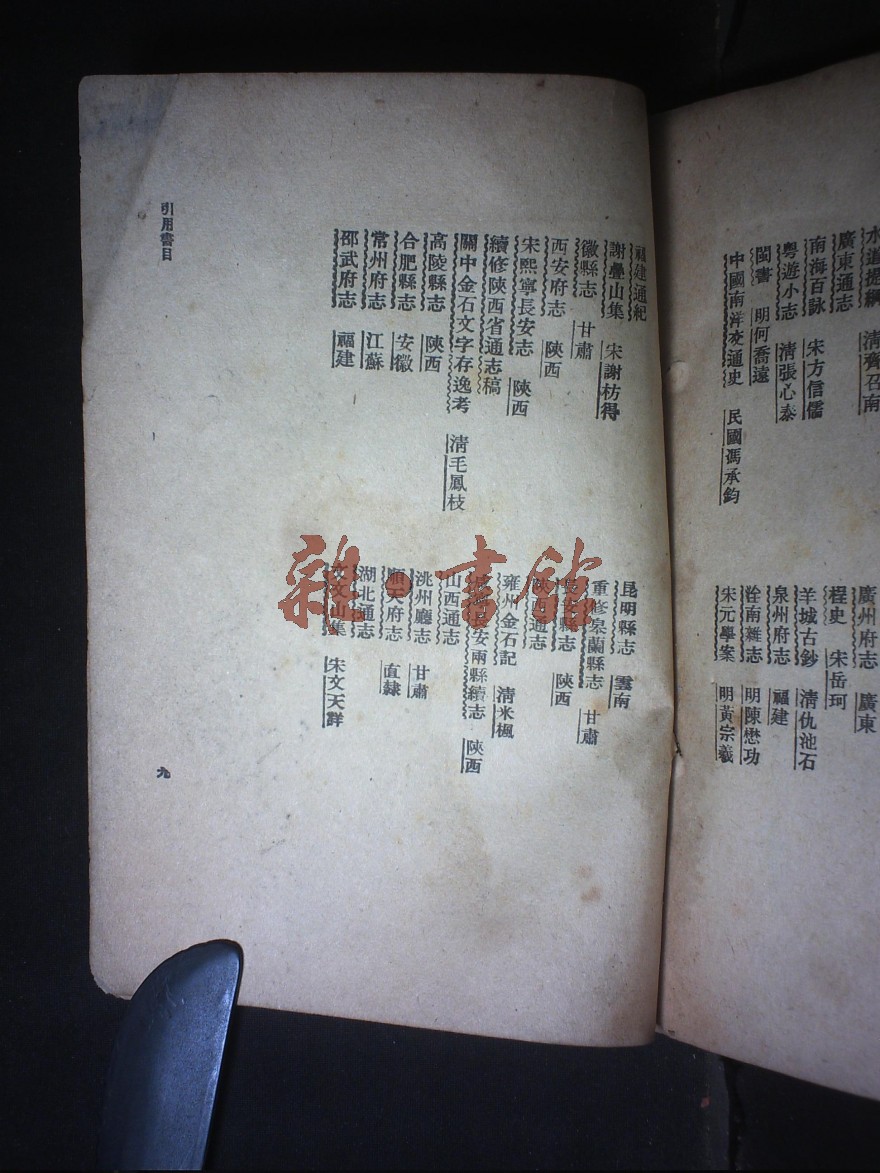 水道提綱 清齊召南
廣東通志
南海百詠 宋方信儒
粵遊小志 清張心泰
閩書 明何喬遠
中國南洋交通史 民國馮承鈞
廣州府志 廣東
桯史 宋岳珂
羊城古鈔 清仇池石
泉州府志 福建
詮南雜志 明陳懋功
宋元學案 明黃宗羲
福建通紀
謝疊山集 宋謝枋得
徽縣志 甘肅
西安府志 陝西
宋熙寧長安志 陝西
續修陝西省通志稿
關中金石文字存逸考 清毛鳳枝
高陵縣志 陝西
合肥縣志 安徽
常州府志 江蘇
邵武府志 福建
昆明縣志 雲南
重修皋蘭縣志 甘肅
長安縣志 陝西
陝西通志
雍州金石記 清米楓
咸寧長安兩縣續志 陝西
山西通志
洮州廳志 甘肅
順天府志 直隸
湖北通志
文文山集 宋文天祥
引用書目
九
雜書館